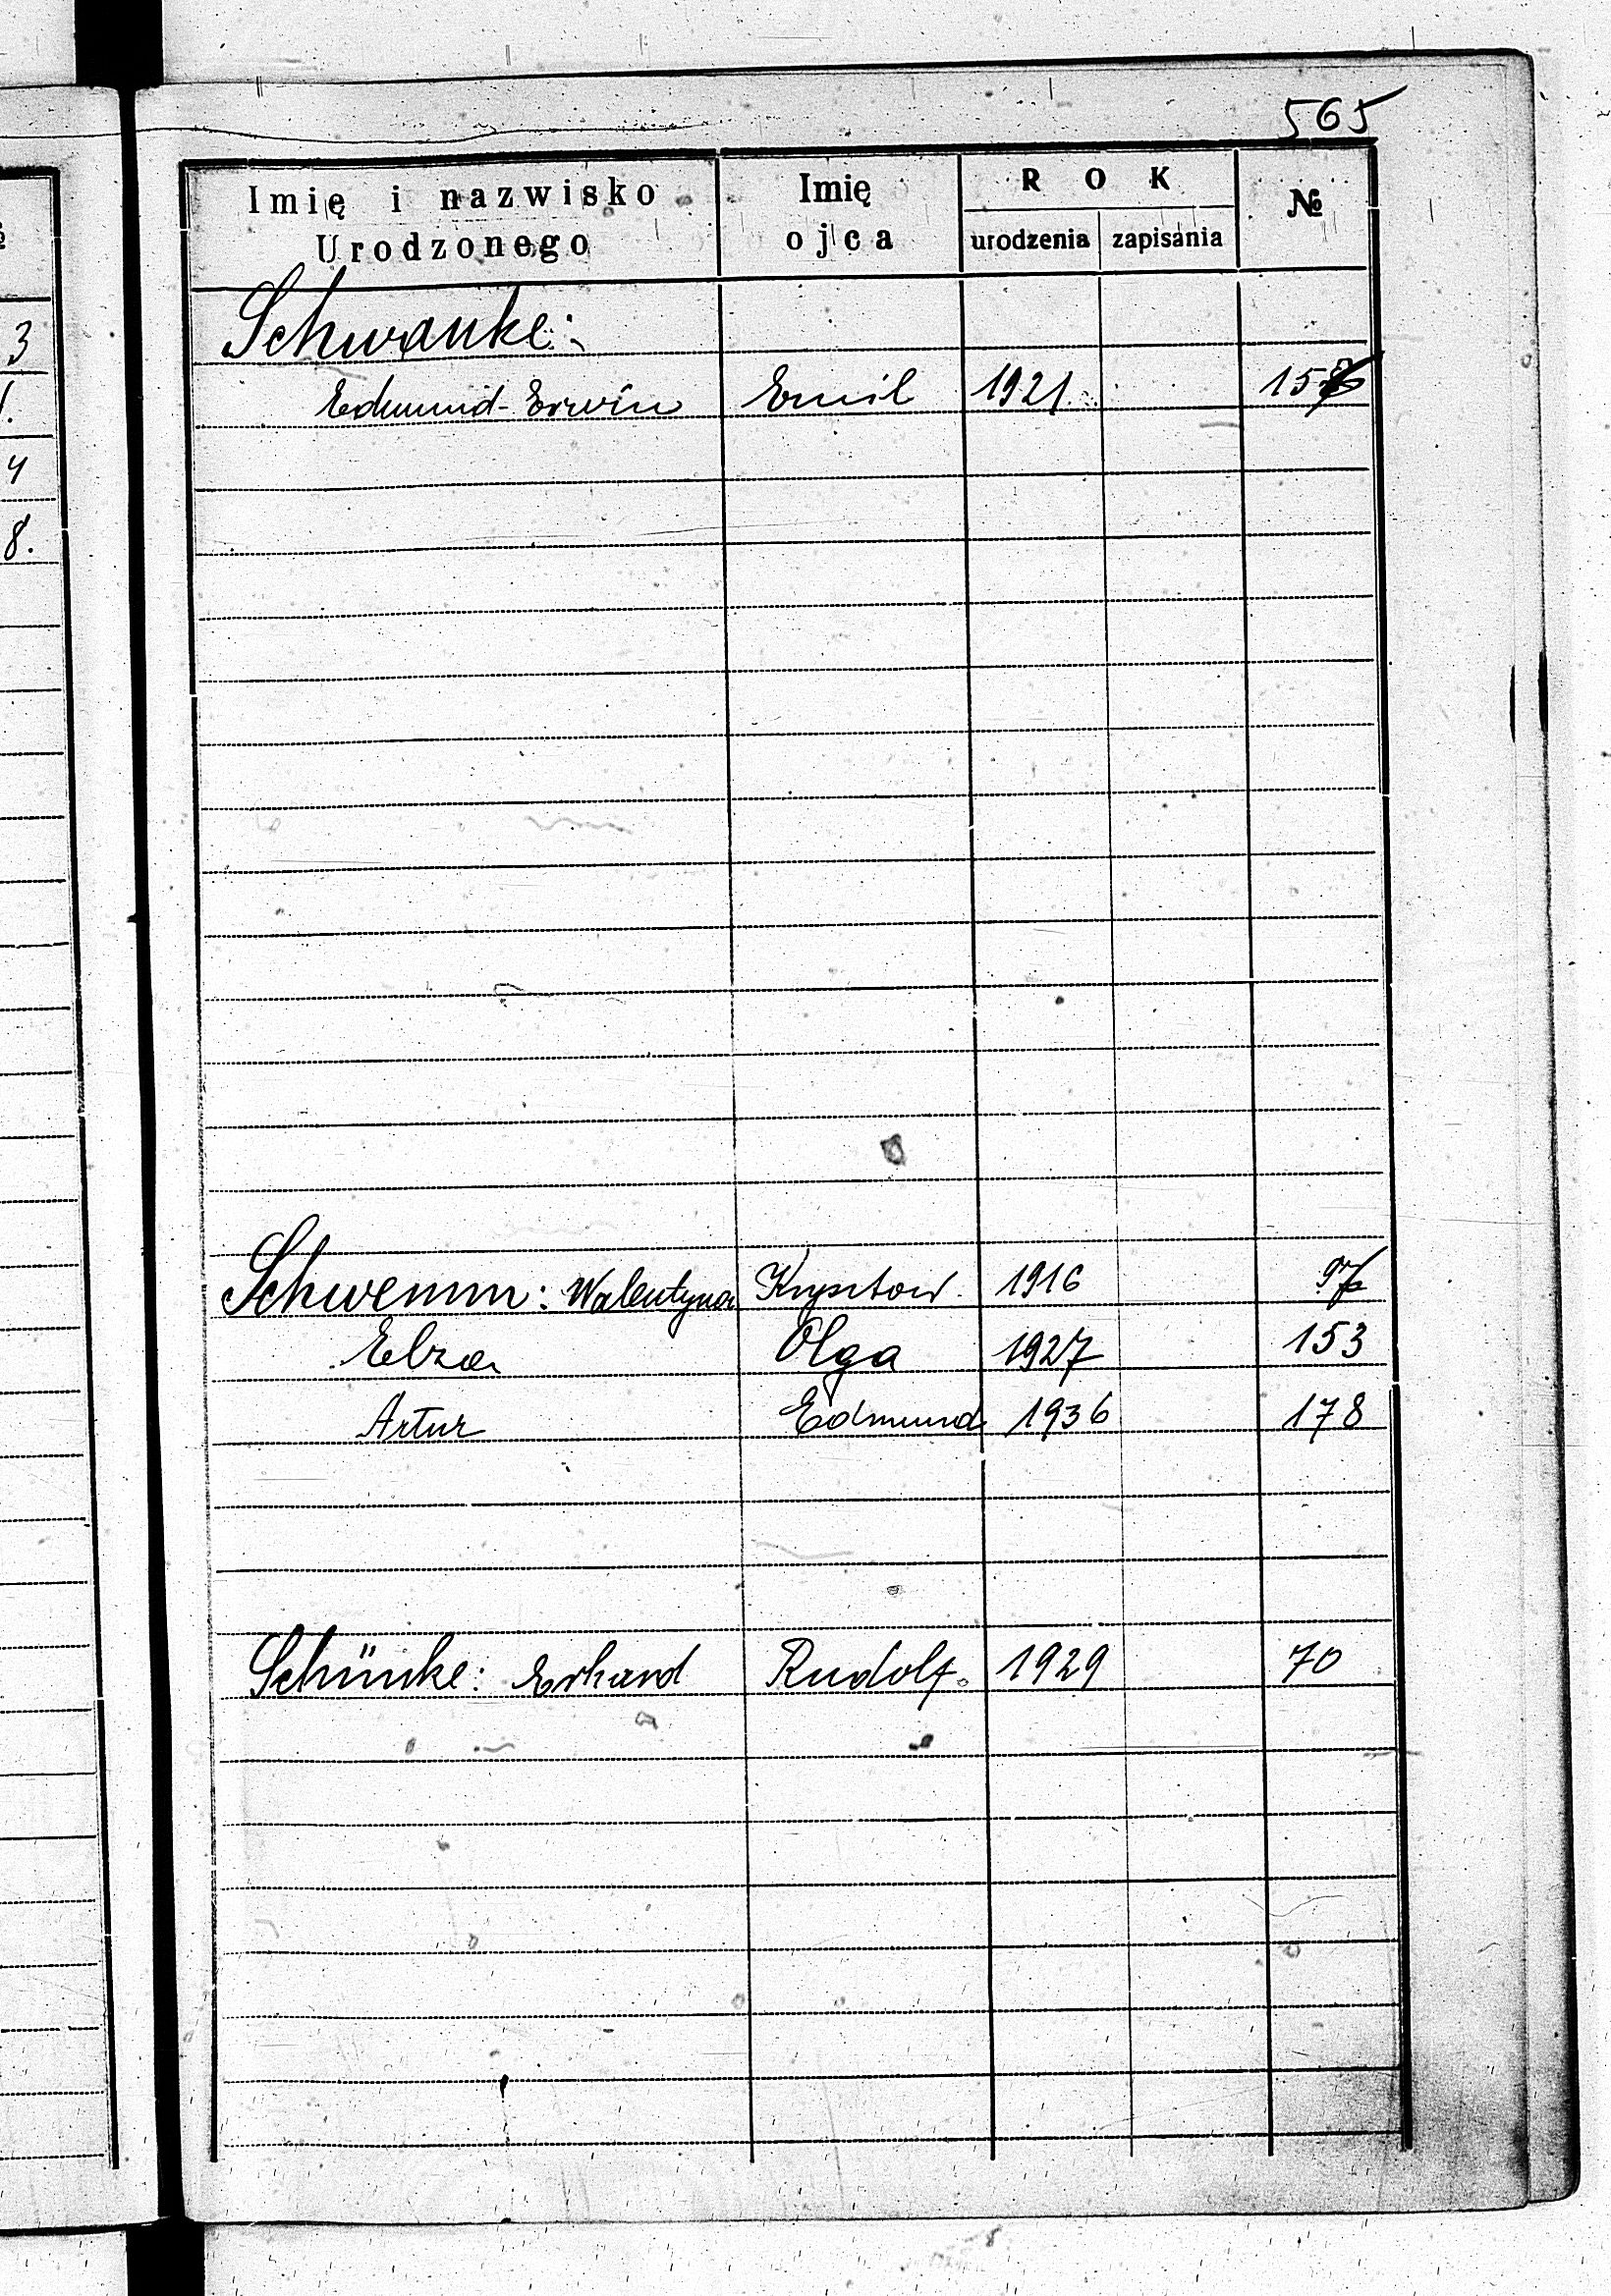 565
Imię i nazwisko Urodzonego Imię ojca ROK urodzenia zapisania №
Schwanke:
Edmund-Erwin Emil 1921
Schwemm: Walentyna Krysztow. 1916
Elza Olga 1927 153
Artur Edmund 1936 178
Schünke: Erhard Rudolf. 1929 70
3
1.
4
8.